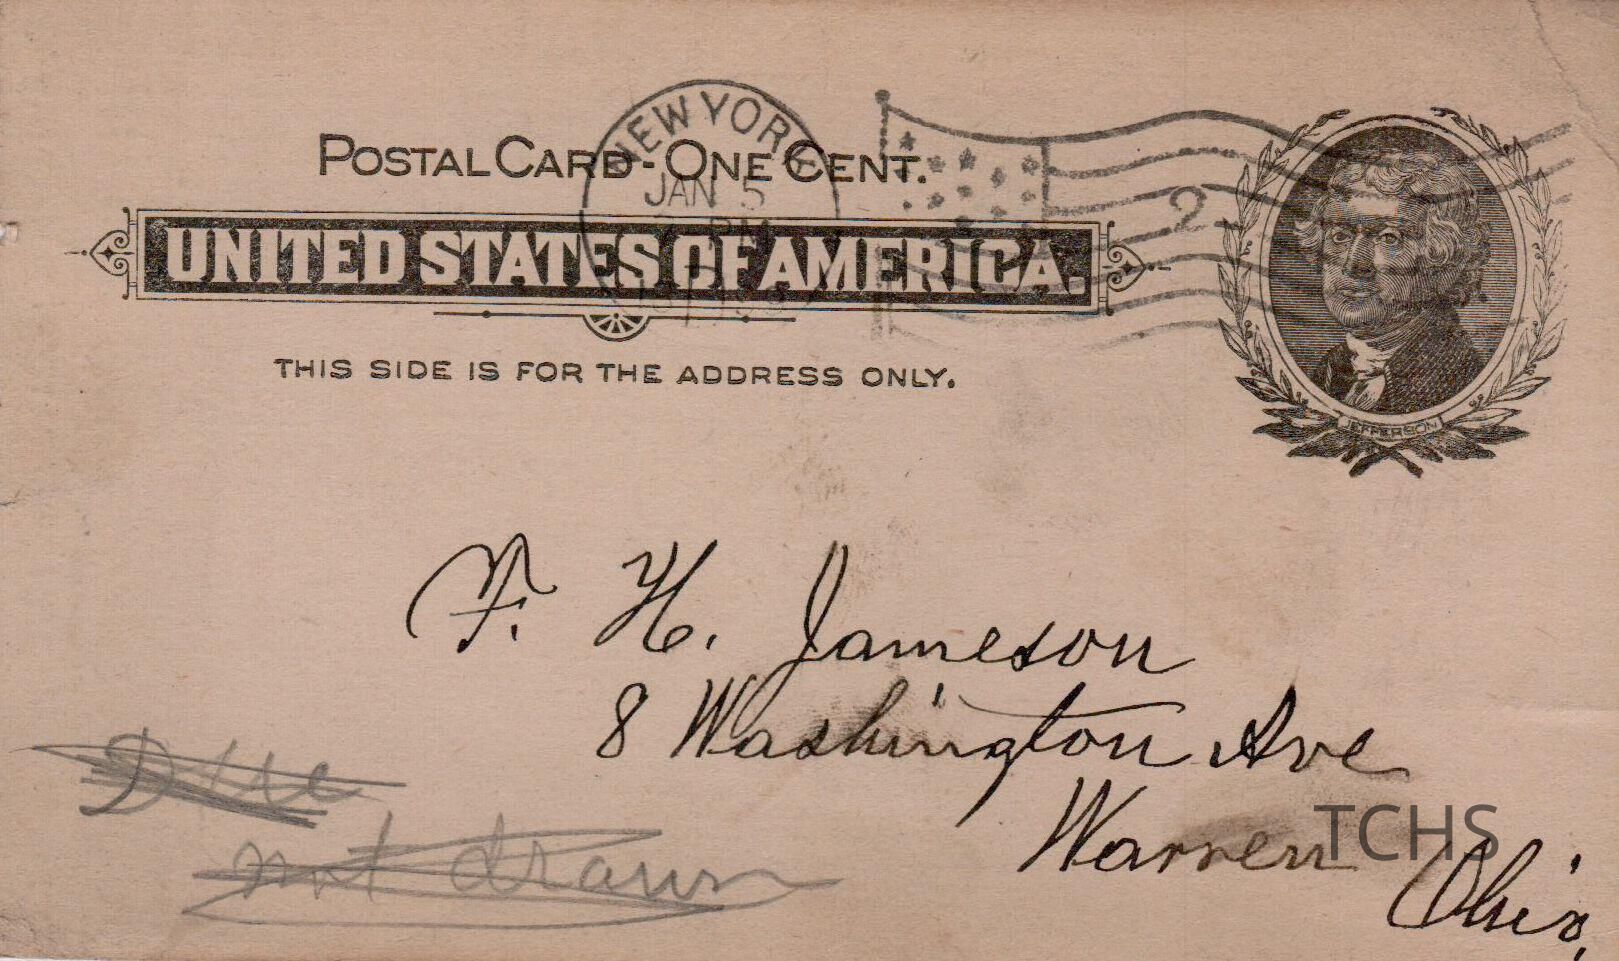 POSTAL CARD - ONE CENT.
NEW YORK
JAN 5
PM
2
UNITED STATES OF AMERICA.
THIS SIDE IS FOR THE ADDRESS ONLY.
JEFFERSON
F. H. Jameson
8 Washington Ave
Warren Ohio,
TCHS
Due
not drawn